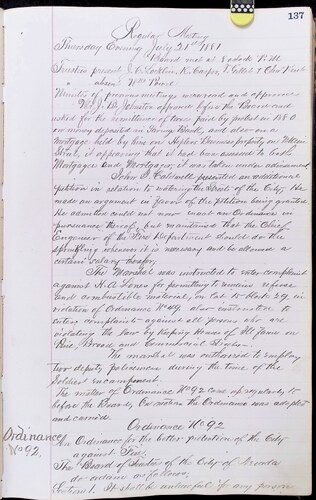 137
Regular Meeting
Thursday Evening July 21st 1881
Board met at 8 oclock P.M.
Trustees present
absent Wm
Minutes of previous meeting were read and approved
Mr J. B. Johnston appeared before the Board and
asked for the remittance of taxes paid by
on money deposited in Savings Bank, and also on a
mortgage held by him on property on
it appearing that it had been assessed to both
Mortgagee and Mortgagor, it was taken under advisement
John Caldwell presented an additional
petition in relation to watering the Streets of the City. He
made an argument in favor of the petition being granted.
He admitted could not now enact an Ordinance in
pursuance thereof but maintained that the Chief
Engineer of the Fire Department should do the
sprinkling whenever it is necessary and be allowed a
certain salary therefor.
The Marshal was instructed to enter complaint
against H. A. for permitting to remain refuse
and combustible material, on lot in block 29, in
violation of Ordinance No 49 also instructed to
enter complaint against all persons
violating the law by keeping House of Ill fame on
Broad and Commercial
The marshal was authorized to employ
two deputy policemen during the time of the
Soldiers encampment.
The matter of Ordinance No 92 came up regularly
before the Board, On motion the Ordinance was adopted
and carried.
Ordinance No 92
Ordinance
No 92.
An Ordinance for the better protection of the City
against Fire.
The Board of Trustees of the City of
do ordain as follows,
Section 1. It shall be unlawful for any person